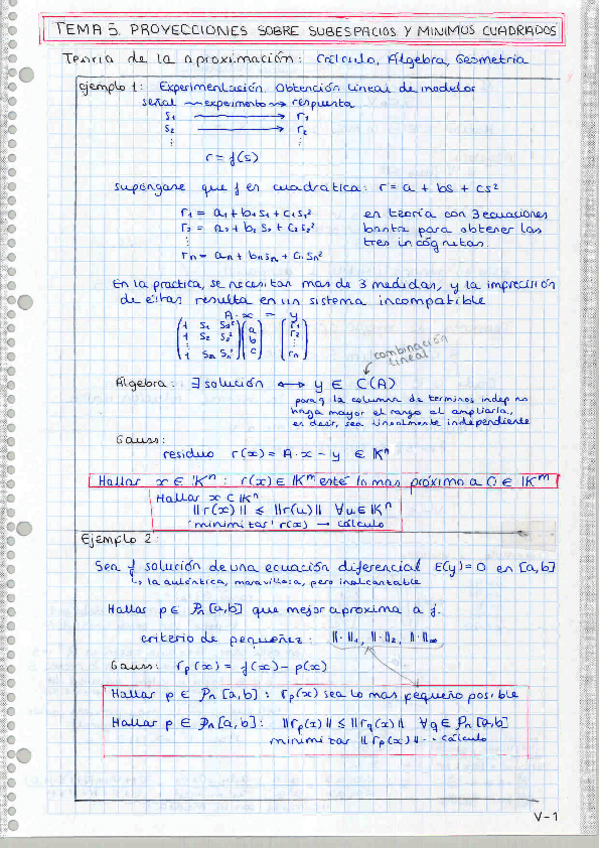 TEMA 5. PROYECCIONES SOBRE SUBESPACIOS Y MINIMOS CUADRADOS
Teoría de la aproximación: Cálculo, Álgebra, Geometría
ejemplo 1: Experimentación. Obtención lineal de modelos
señal ~experimento~> respuesta
s₁ ⟶ r₁
s₂ ⟶ r₂
⋮ ⋮
r = f(s)
supóngase que f es cuadrática: r = a + bs + cs²
r₁ = a₁ + b₁s₁ + c₁s₁² en teoría con 3 ecuaciones
r₂ = a₂ + b₂s₂ + c₂s₂² basta para obtener las
⋮ tres incógnitas.
rₙ = aₙ + bₙsₙ + cₙsₙ²
En la practica, se necesitan mas de 3 medidas, y la imprecisión
de éstas resulta en un sistema incompatible
A · x = y
(1 s₁ s₁²) (a) (r₁)
(1 s₂ s₂²) (b) = (r₂)
(⋮) (⋮)
(1 sₙ sₙ²) (c) (rₙ)
combinación
lineal
Álgebra: ∃ solución ⟷ y ∈ C(A)
para q la columna de terminos indep no
haga mayor el rango al ampliarla,
es decir, sea linealmente independiente
Gauss:
residuo r(x) = A·x − y ∈ Kⁿ
Hallar x ∈ Kⁿ : r(x) ∈ Kᵐ esté lo mas próximo a 0 ∈ Kᵐ
Hallar x ⊂ Kⁿ
‖r(x)‖ ≤ ‖r(u)‖ ∀u ∈ Kⁿ
'minimizar' r(x) → cálculo
Ejemplo 2:
Sea f solución de una ecuación diferencial E(y)=0 en [a,b]
↳ la auténtica, maravillosa, pero inalcantable
Hallar p ∈ Pₙ[a,b] que mejor aproxima a f.
criterio de pequeñez: ‖·‖₁, ‖·‖₂, ‖·‖∞
Gauss: rₚ(x) = f(x) − p(x)
Hallar p ∈ Pₙ[a,b] : rₚ(x) sea lo mas pequeño posible
Hallar p ∈ Pₙ[a,b]: ‖rₚ(x)‖ ≤ ‖r_q(x)‖ ∀q ∈ Pₙ[a,b]
minimizar ‖rₚ(x)‖ ··· cálculo
V-1